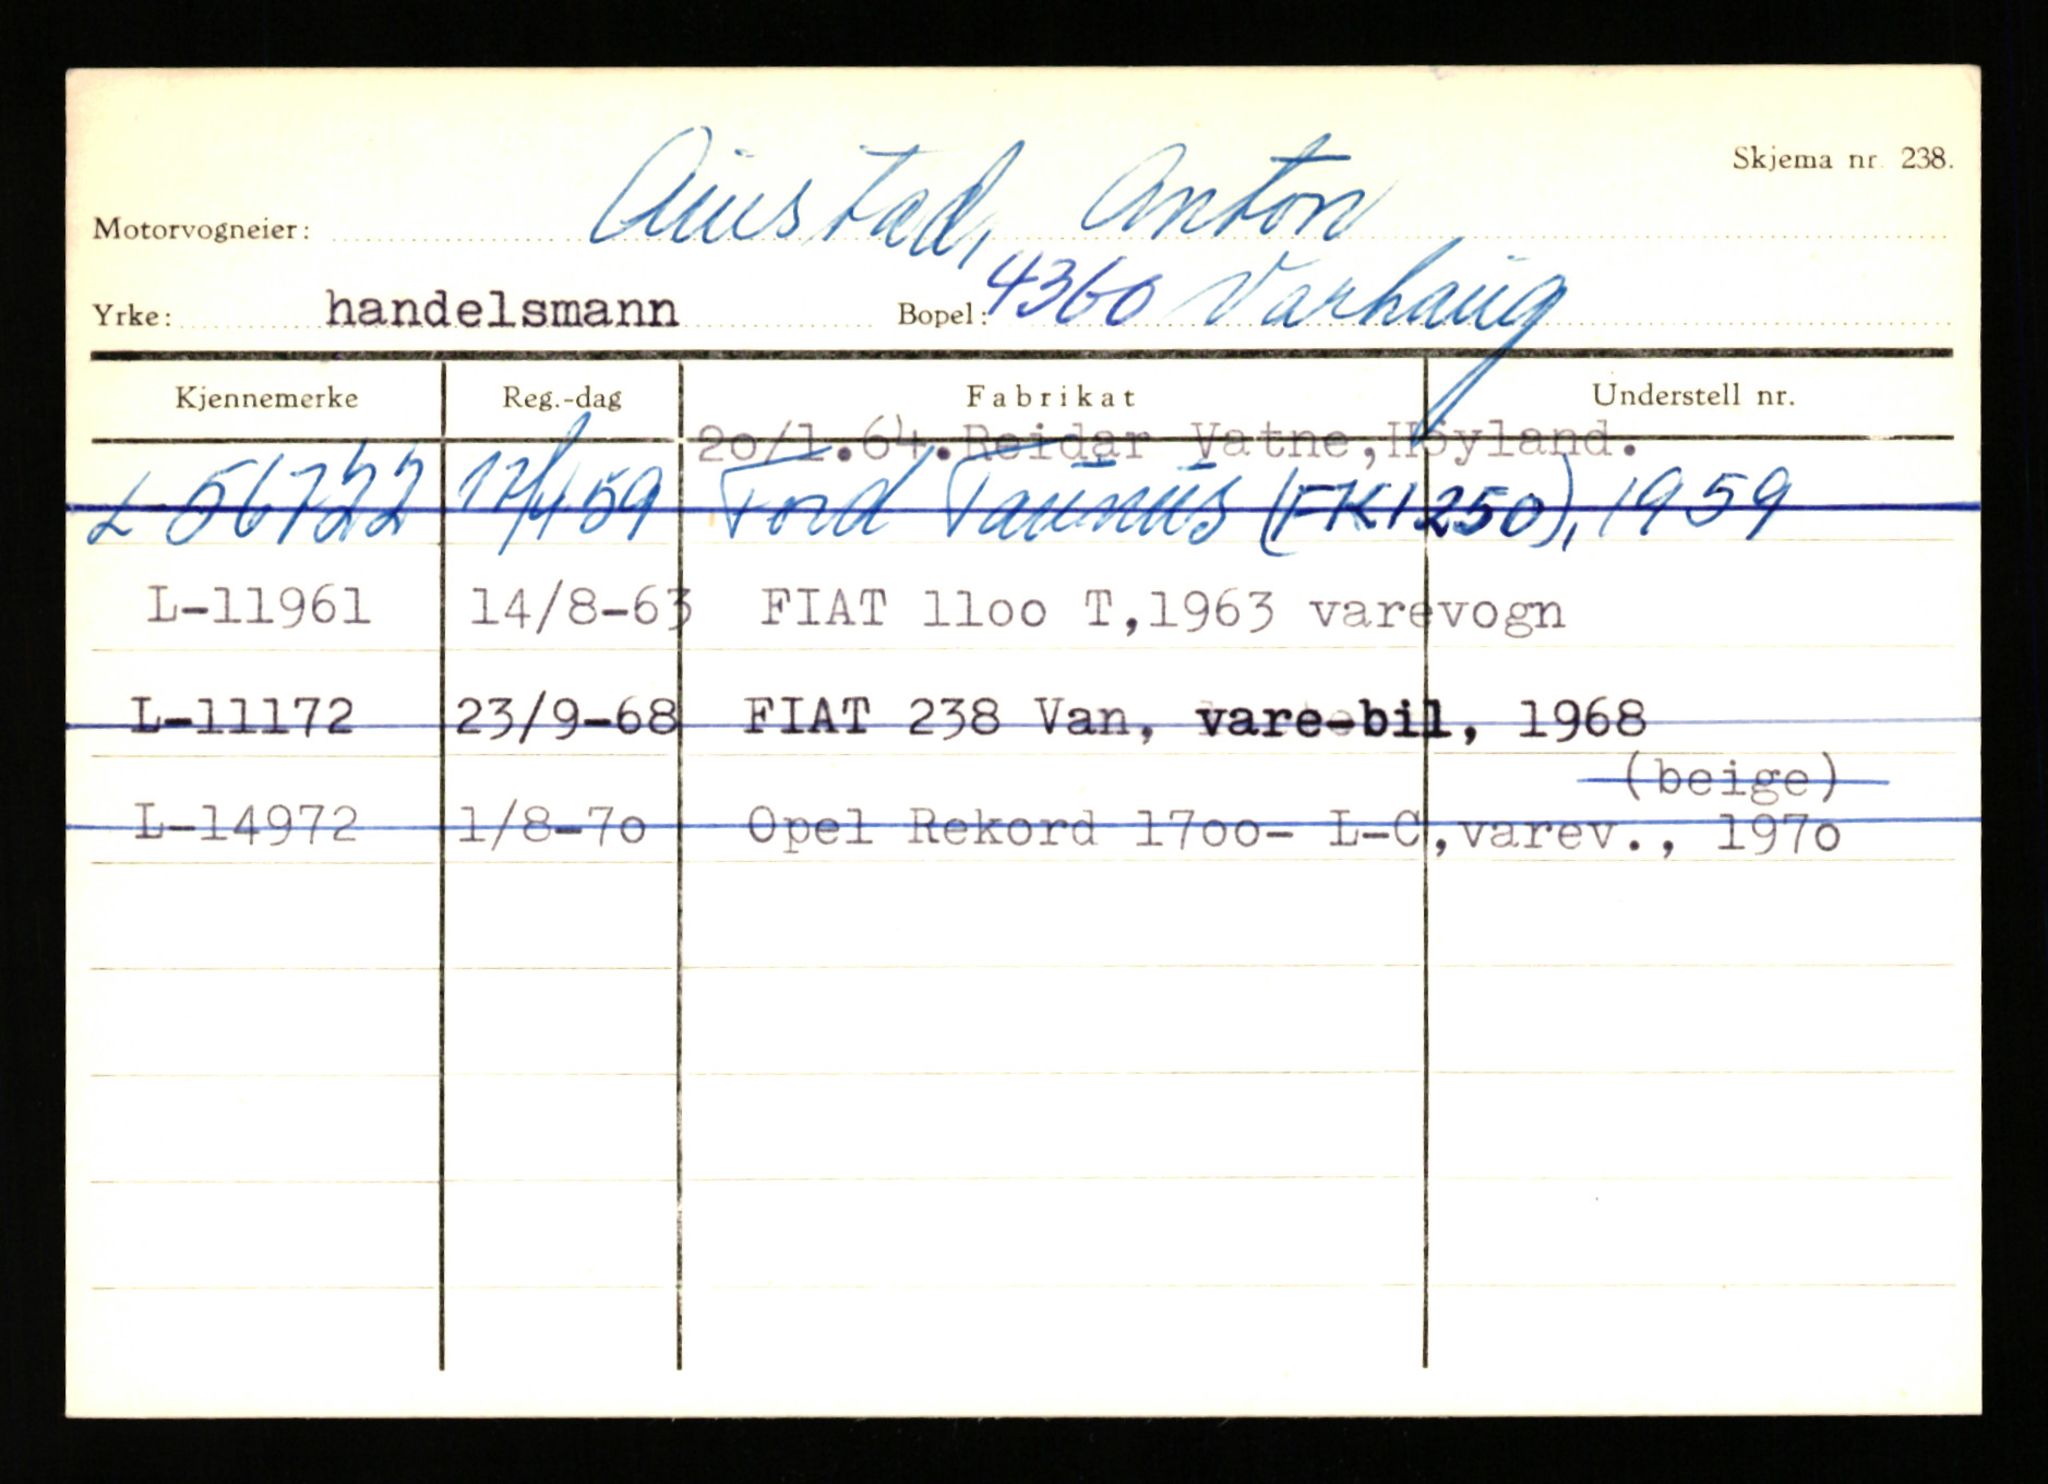 Skjema nr. 238.
Motorvogneier: Austad, Anton
Yrke: handelsmann Bopel: 4360 Varhaug
Kjennemerke Reg.-dag Fabrikat Understell nr.
20/1.64. Reidar Vatne, Høyland.
L-56722 17/4 59 Ford Taunus (FK1250), 1959
L-11961 14/8-63 FIAT 11oo T,1963 varevogn
L-11172 23/9-68 FIAT 238 Van, vare-bil, 1968
(beige)
L-14972 1/8-7o Opel Rekord 17oo- L-C,varev., 197o